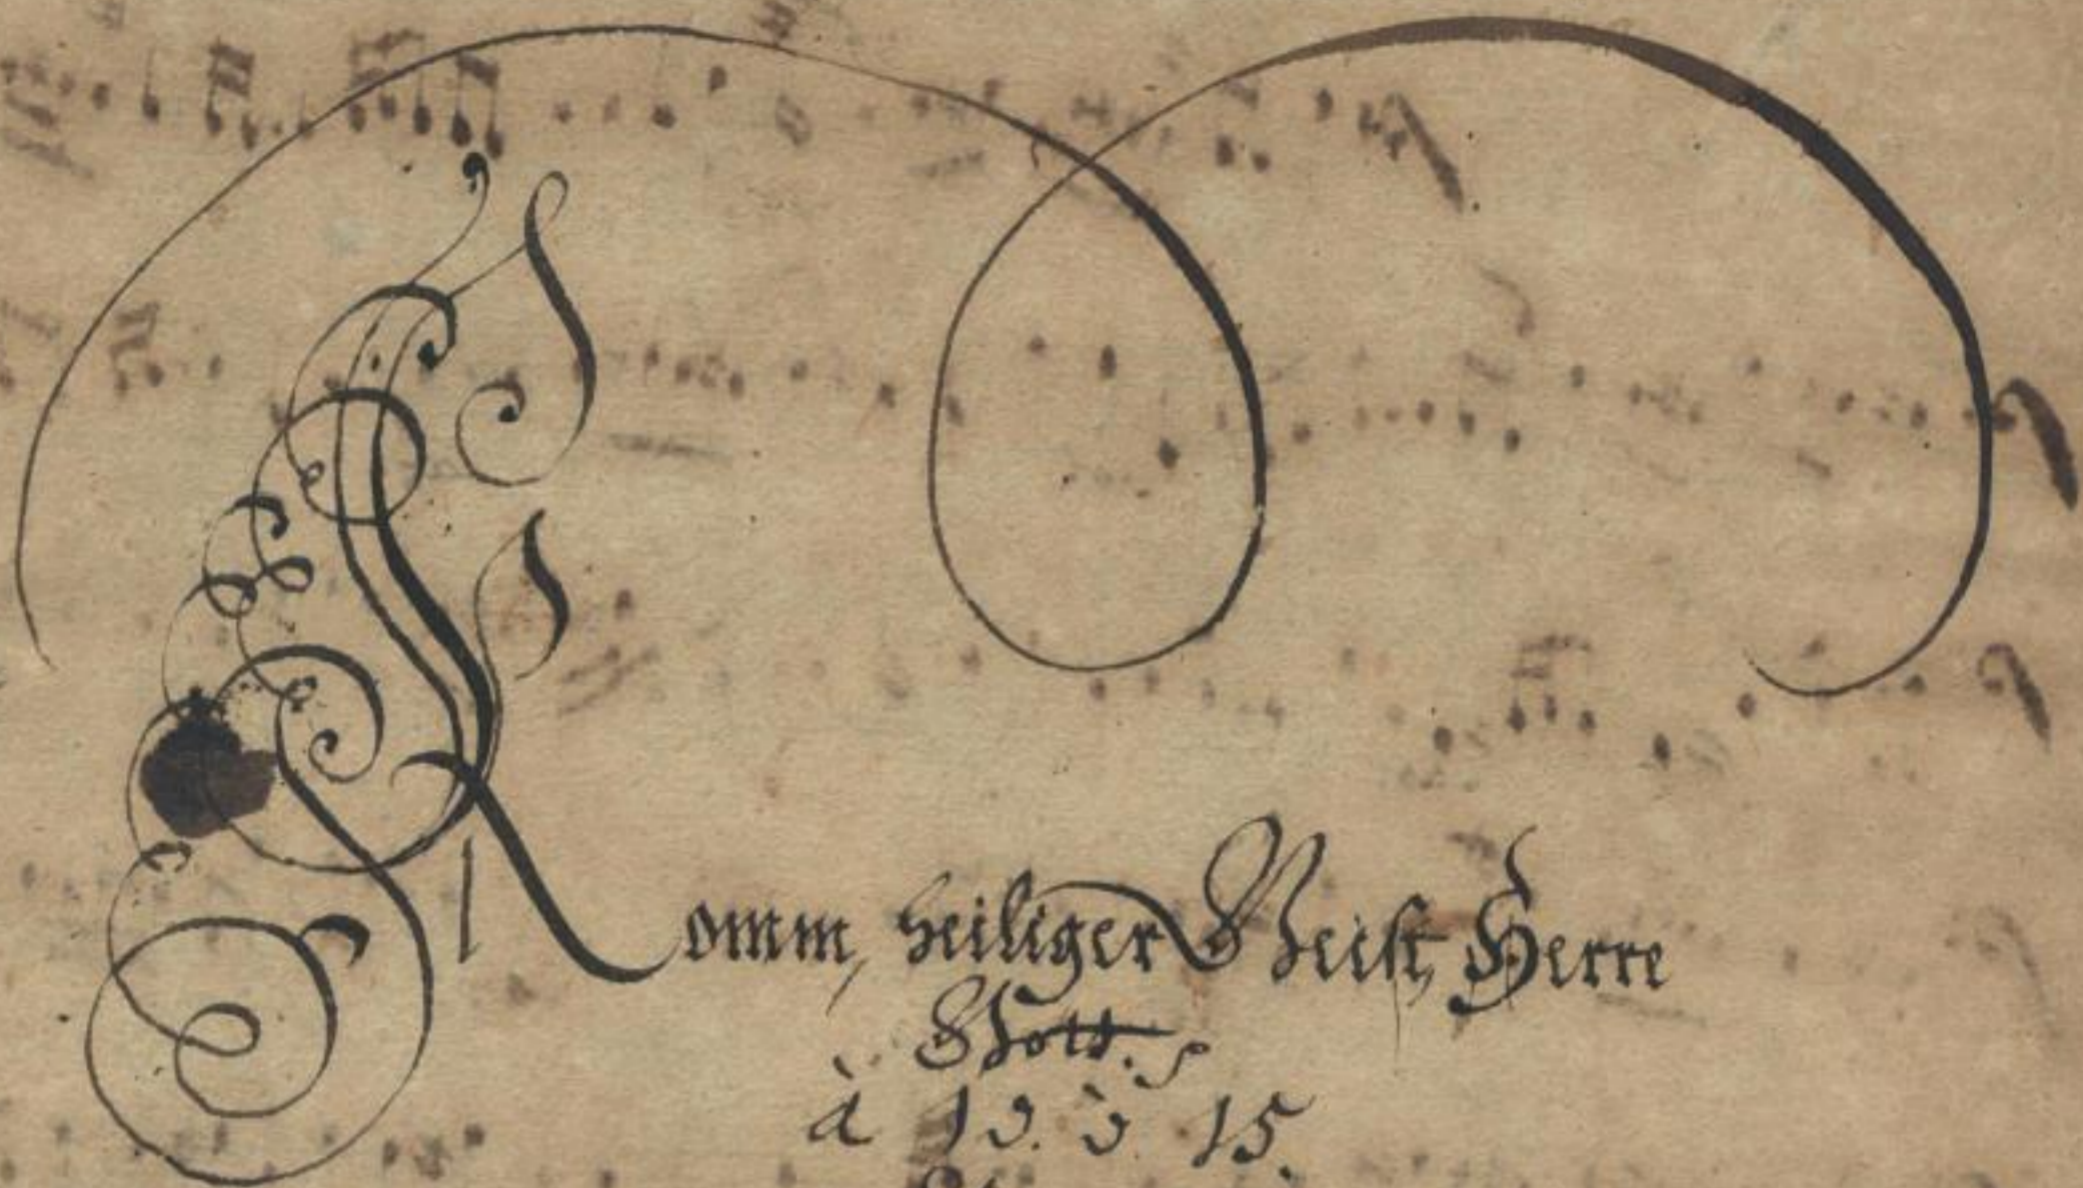 Komm, heiliger Geist, Herre
Gott.
à 10. ò 15.